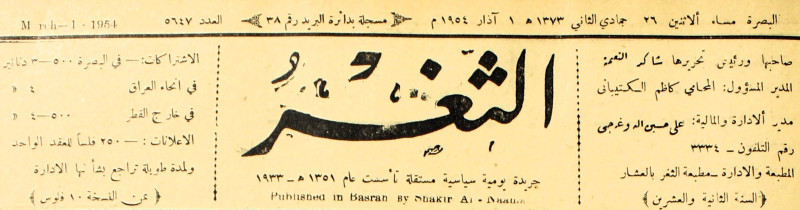 البصرة مساء ألاثنين ٢٦ جمادي الثاني ١٣٧٣ ه ١ آذار ١٩٥٤ م
مسجلة بدائرة البريد رقم ٣٨
العدد ٥٦٤٧
March-1-1954
صاحبها ورئيس تحريرها شاكر النعمة
المدير المسؤول: المحامي كاظم الكتيباني
مدير ألادارة والمالية: علي حسين اله وغرجي
رقم التلفون - ٣٣٣٤
المطبعة والادارة - مطبعة الثغر بالعشار
﴿السنة الثانية والعشرين﴾
الثغر
جريدة يومية سياسية مستقلة تأسست عام ١٣٥١ ه - ١٩٣٣
Published in Basrah By Shakir Al - Naama
الاشتراكات: - في البصرة ٥٠٠-٣ دنانير
في انحاء العراق ٤ »
في خارج القطر ٥٠٠-٤ »
الاعلانات: - ٢٥٠ فلساً للعقد الواحد
ولمدة طويلة تراجع بشأنها الادارة
﴿ثمن النسخة ١٠ فلوس﴾